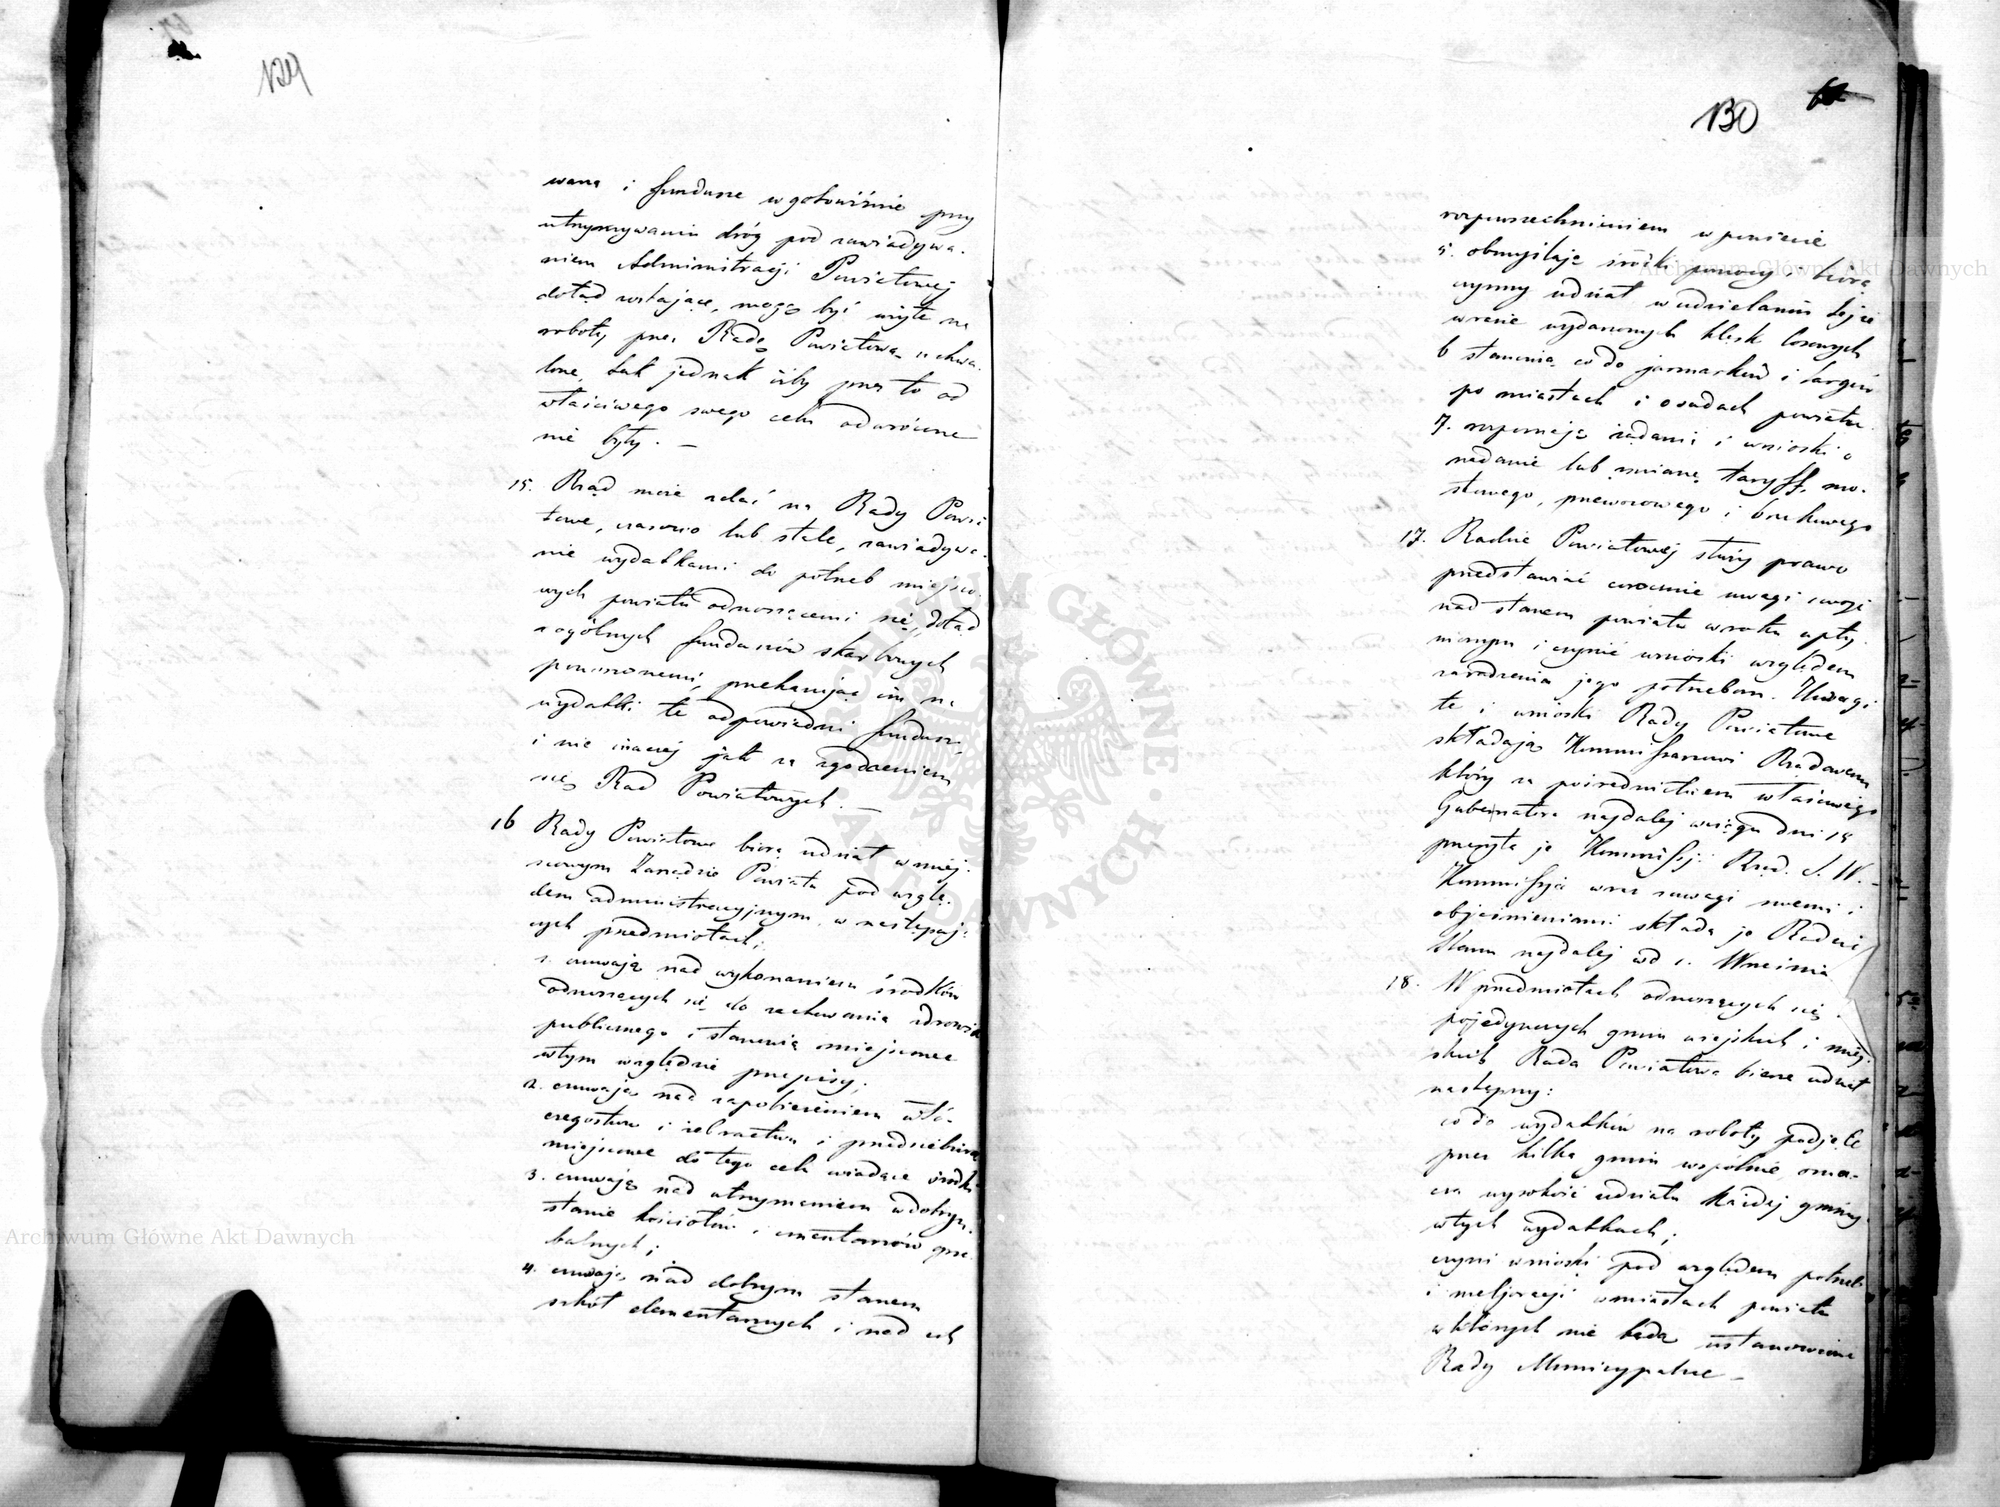 129
wana i fundusze w gotowiźnie przy
utrzymywaniu dróg pod zawiadywa-
niem Administracji Powiatowej
dotąd zostające, mogą być użyte na
roboty przez Radę Powiatową uchwa-
lone, tak jednak iżby przez to od
właściwego swego celu odwrócone
nie były. —
15. Rząd może zdać na Rady Powia
towe, czasowo lub stale, zawiadywa-
nie wydatkami do potrzeb miejsco-
wych powiatu odnoszącemi się, dotąd
z ogólnych funduszów skarbowych
ponoszonemi, przekazując im na
wydatki te odpowiedni fundusz,
i nie inaczej jak za zgodzeniem
się Rad Powiatowych. —
16 Rady Powiatowe biorą udział w miej-
scowym Zarządzie Powiatu pod wzglę-
dem administracyjnym w następują-
cych przedmiotach;
1. czuwają nad wykonaniem środków
odnoszących się do zachowania zdrowia
publicznego i stanowią miejscowe
w tym względzie przepisy;
2. czuwają nad zapobieżeniem włó-
częgostwu i żebractwu i przedsiębiorą
miejscowe do tego celu wiodące środki
3. czuwają nad utrzymaniem w dobrym
stanie kościołów i cmentarzów grze-
balnych;
4. czuwają nad dobrym stanem
szkół elementarnych i nad ich
130
rozpowszechnieniem w powiecie
5. obmyślają środki pomocy i biorą
czynny udział w udzielaniu tejże
w razie wydarzonych klęsk losowych
6 stanowią co do jarmarków i targów
po miastach i osadach powiatu.
7. rozpoznają żądania i wnioski o
nadanie lub zmianę taryff mo-
stowego, przewozowego i brukowego
17. Radzie Powiatowej służy prawo
przedstawiać corocznie uwagi swoje
nad stanem powiatu w roku upły-
nionym i czynić wnioski względem
zaradzenia jego potrzebom. Uwagi
te i wnioski Rady Powiatowe
składają Kommissarzowi Rządowemu
który za pośrednictwem właściwego
Gubernatora najdalej w ciągu dni 15
przesyła je Kommissji Rząd. S. W. —
Kommissja wraz z uwagi swemi i
objaśnieniami składa je Radzie
Stanu najdalej od 1. Września
18. W przedmiotach odnoszących się
pojedynczych gmin wiejskich i miej-
skich Rada Powiatowa bierze udział
następny:
co do wydatków na roboty podjęte
przez kilka gmin wspólnie, ozna-
cza wysokość udziału każdej gminy
w tych wydatkach;
czyni wnioski pod względem potrzeb
i meljoracji w miastach powiatu
w których nie będą ustanowione
Rady Municypalne —
Archiwum Główne Akt Dawnych
Archiwum Główne Akt Dawnych
ARCHIWUM GŁÓWNE · AKT DAWNYCH ·